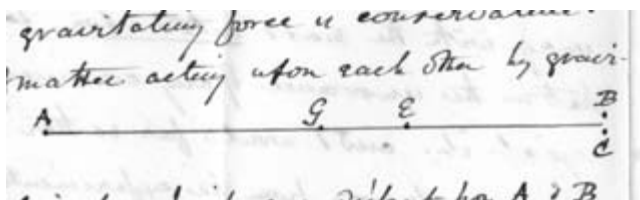 gravitating force is conservative.
matter acting upon each other by gravi-
A G E B
C
A & B